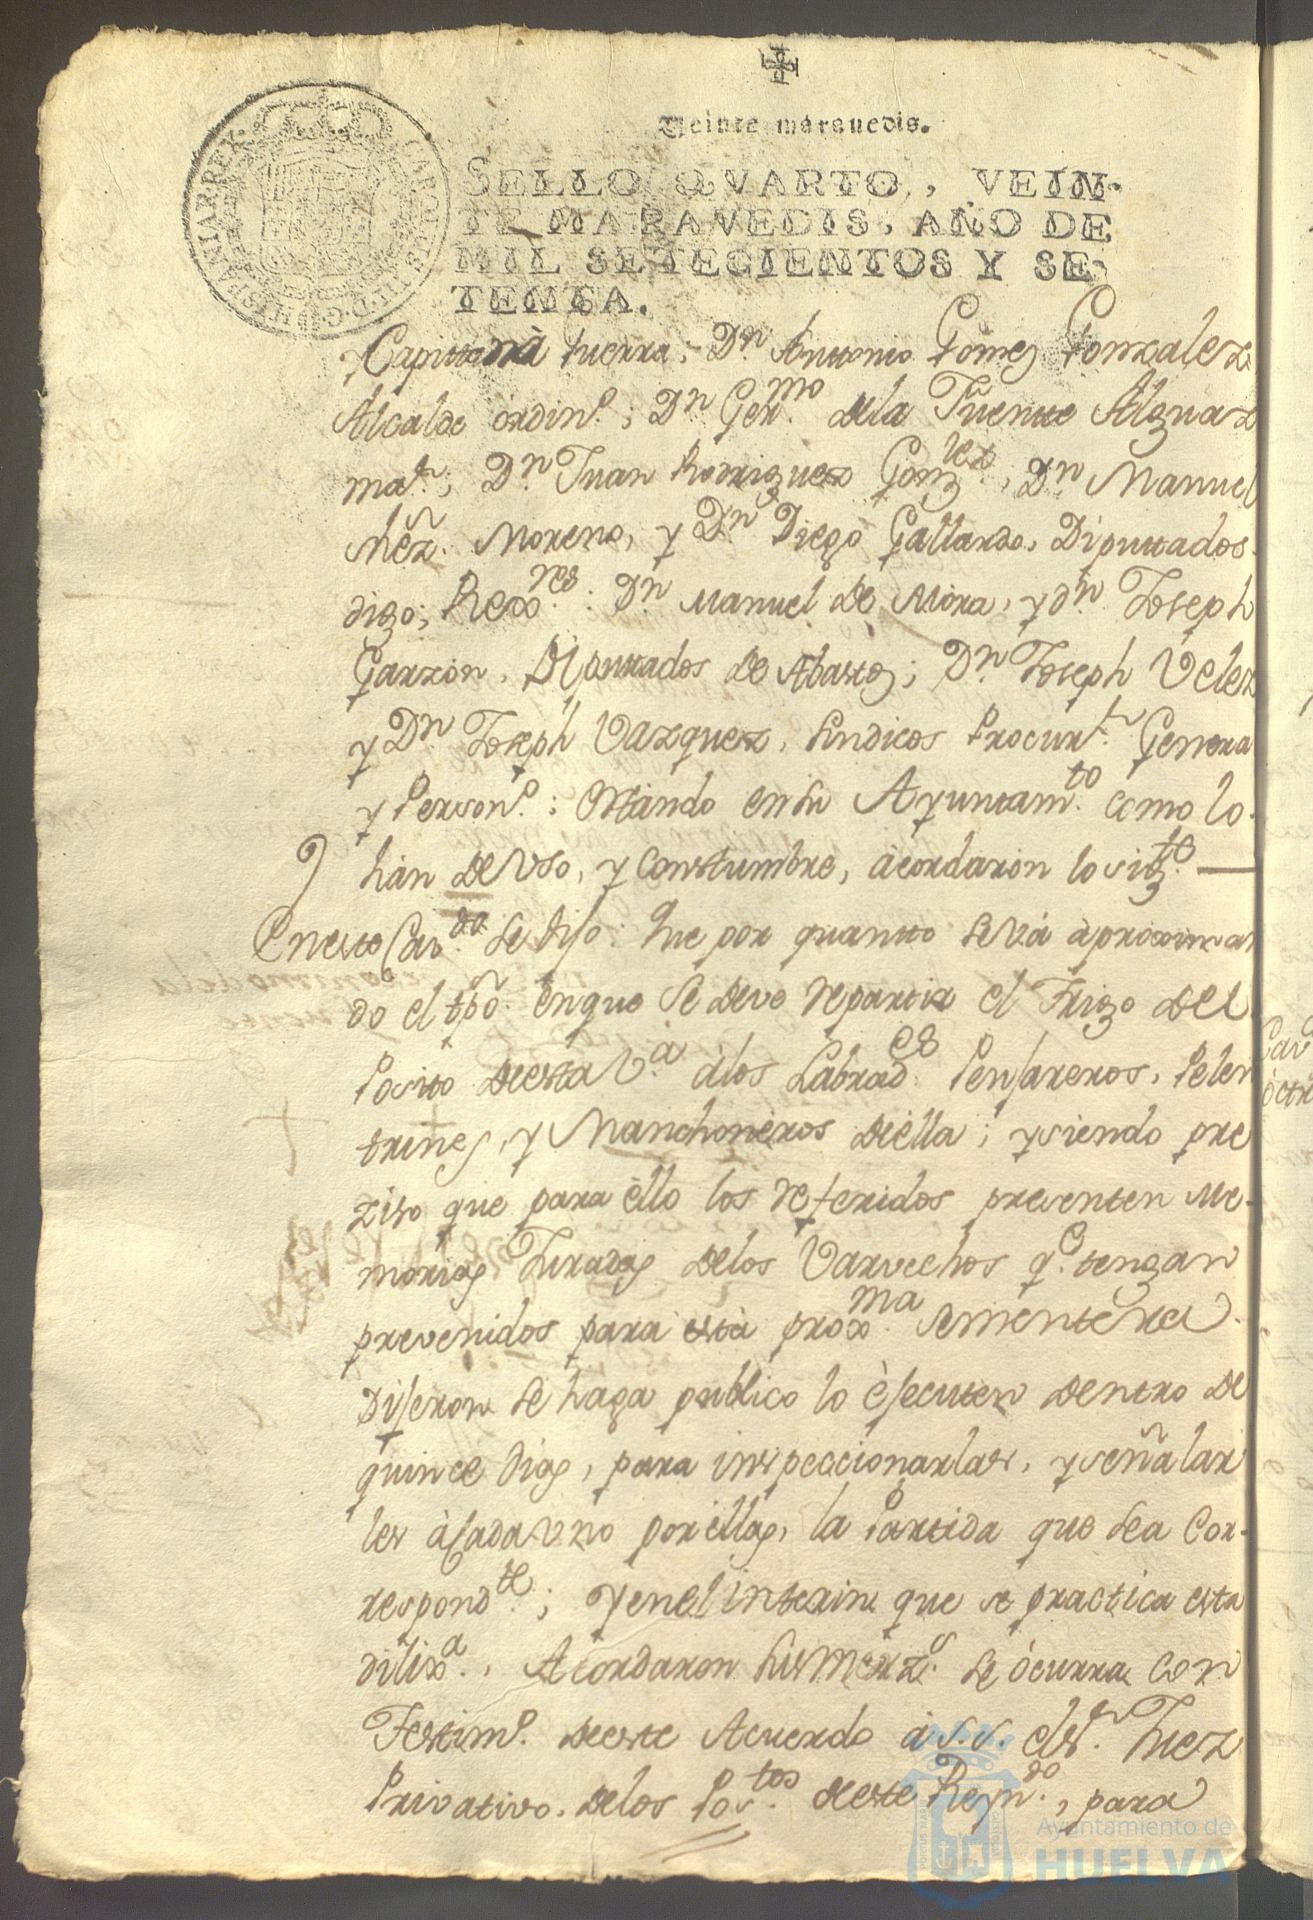 Veinte marauedis.
SELLO QVARTO, VEIN-
TE MARAVEDIS, AÑO DE
MIL SETECIENTOS Y SE-
TENTA.
CAROLUS III D G HISPANIAR REX
y Capitan à Guerra; Dn Antonio Gomez Gonzalez
Alcalde ordin.º; Dn Germo de la Fuente Alguaz
mar.; Dn Juan Rodriguez Gonzlez, Dn Manuel
Mẽz. Moreno, y Dn Diego Gallardo, Diputados
digo; Rexores: Dn Manuel de Mora, y dn Joseph
Garzon, Diputados de Abastos; Dn Joseph Velez
y Dn Joseph Vazquez, Sindicos Procurr. Genera
y Person.º; estando en su Ayuntamto como lo
hán de Vso, y Constumbre, àcordaron lo sigte
En este Cavdo se dijo: Que por quanto se và àproximan
do el tpõ. en que se deve repartir el Trigo del
Posito de esta Va à los Labrades Penjareros, Pelen
trines, y Manchoneros de èlla; y siendo pre
ziso que para èllo los referidos presenten Me-
morias Juradas de los Varvechos qe tengan
prevenidos para està proxma sementera.
Dijeron se haga publico lo èjecuten dentro de
quince dias, para inspeccionarlas, y señalar
les à cada uno por èllas, la Partida que sea cor-
respondte; y en el interin que se practica esta
dilixa., Acordaron sus merzs. se òcurra con
Testim.º de este Acuerdo à S.S. el sr. Juez
Privativo de los Postos de este Reyndo, para
Cavº
Ayuntamiento de
HUELVA